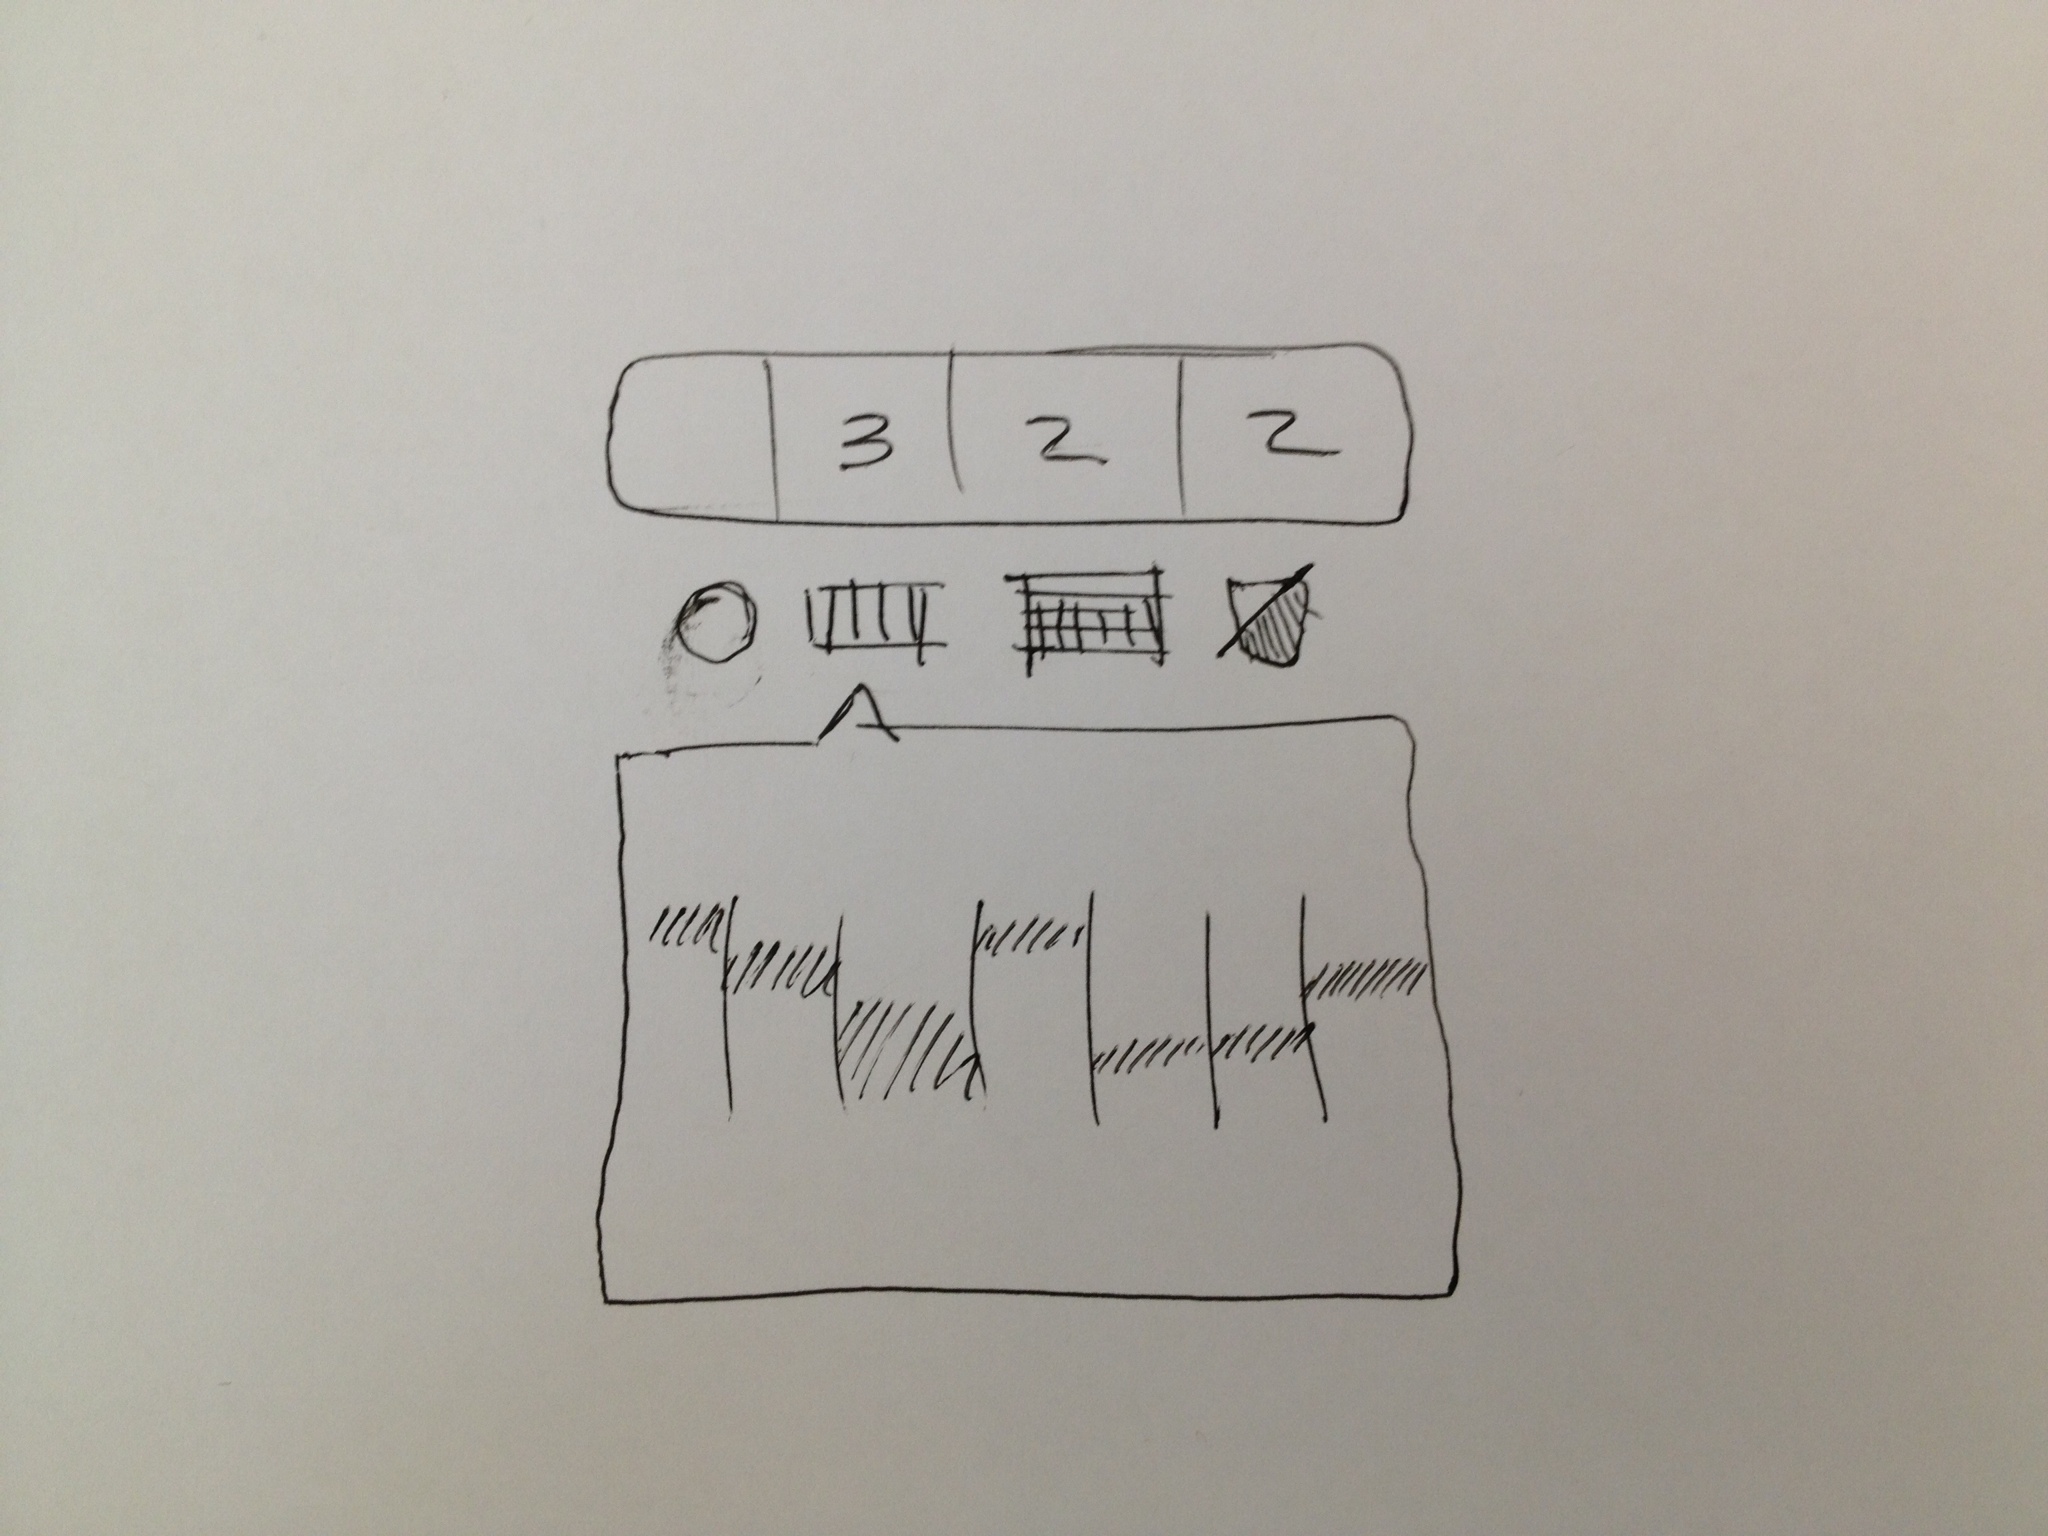 3 2 2